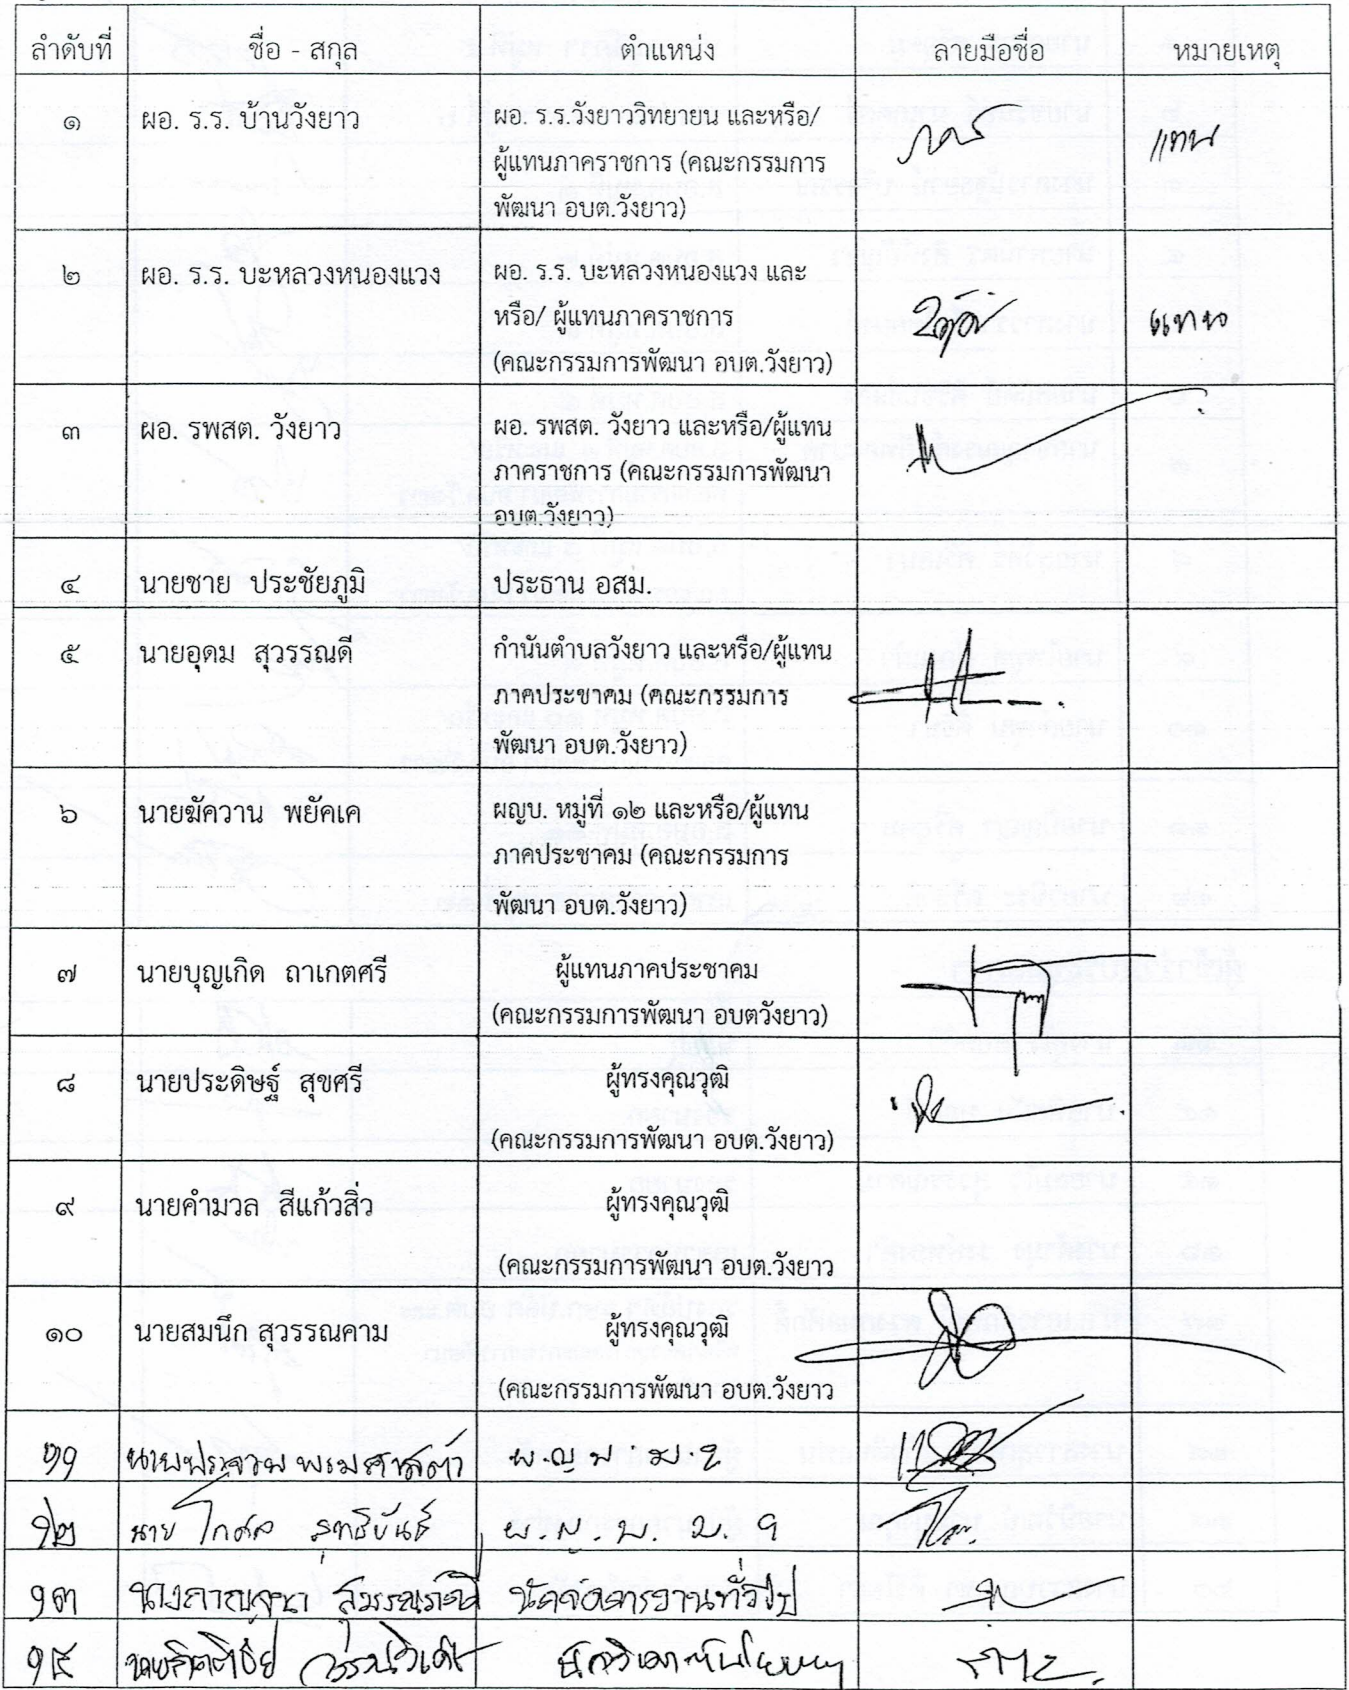 ลำดับที่ ชื่อ - สกุล ตำแหน่ง ลายมือชื่อ หมายเหตุ
๑ ผอ. ร.ร. บ้านวังยาว ผอ. ร.ร.วังยาววิทยายน และหรือ/
ผู้แทนภาคราชการ (คณะกรรมการ แทน
พัฒนา อบต.วังยาว)
๒ ผอ. ร.ร. บะหลวงหนองแวง ผอ. ร.ร. บะหลวงหนองแวง และ
หรือ/ ผู้แทนภาคราชการ แทน
(คณะกรรมการพัฒนา อบต.วังยาว)
๓ ผอ. รพสต. วังยาว ผอ. รพสต. วังยาว และหรือ/ผู้แทน
ภาคราชการ (คณะกรรมการพัฒนา
อบต.วังยาว)
๔ นายชาย ประชัยภูมิ ประธาน อสม.
๕ นายอุดม สุวรรณดี กำนันตำบลวังยาว และหรือ/ผู้แทน
ภาคประชาคม (คณะกรรมการ
พัฒนา อบต.วังยาว)
๖ นายฆัควาน พยัคเค ผญบ. หมู่ที่ ๑๒ และหรือ/ผู้แทน
ภาคประชาคม (คณะกรรมการ
พัฒนา อบต.วังยาว)
๗ นายบุญเกิด ถาเกตศรี ผู้แทนภาคประชาคม
(คณะกรรมการพัฒนา อบตวังยาว)
๘ นายประดิษฐ์ สุขศรี ผู้ทรงคุณวุฒิ
(คณะกรรมการพัฒนา อบต.วังยาว)
๙ นายคำมวล สีแก้วสิ่ว ผู้ทรงคุณวุฒิ
(คณะกรรมการพัฒนา อบต.วังยาว
๑๐ นายสมนึก สุวรรณคาม ผู้ทรงคุณวุฒิ
(คณะกรรมการพัฒนา อบต.วังยาว
๑๑ นายประจวบ
๑๒ นาย โกศล สุทธิยันต์ ผ.ญ.บ. ม. ๑
๑๓ นางกาญจนา สุวรรณภักดี นักจัดการงานทั่วไป
๑๔